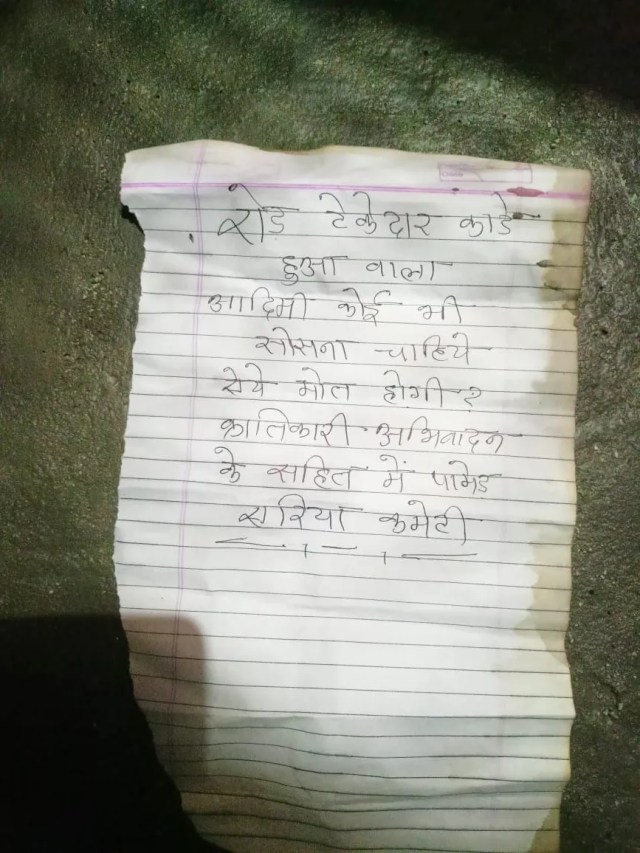 रोड टेकेदार काडे
हुआ वाला
आदिमी कोई भी
सोसना चाहिये
सेये मोत होगी ?
कातिकारी अभिवादन
के सहित में पामेड
सरिया कमेटी